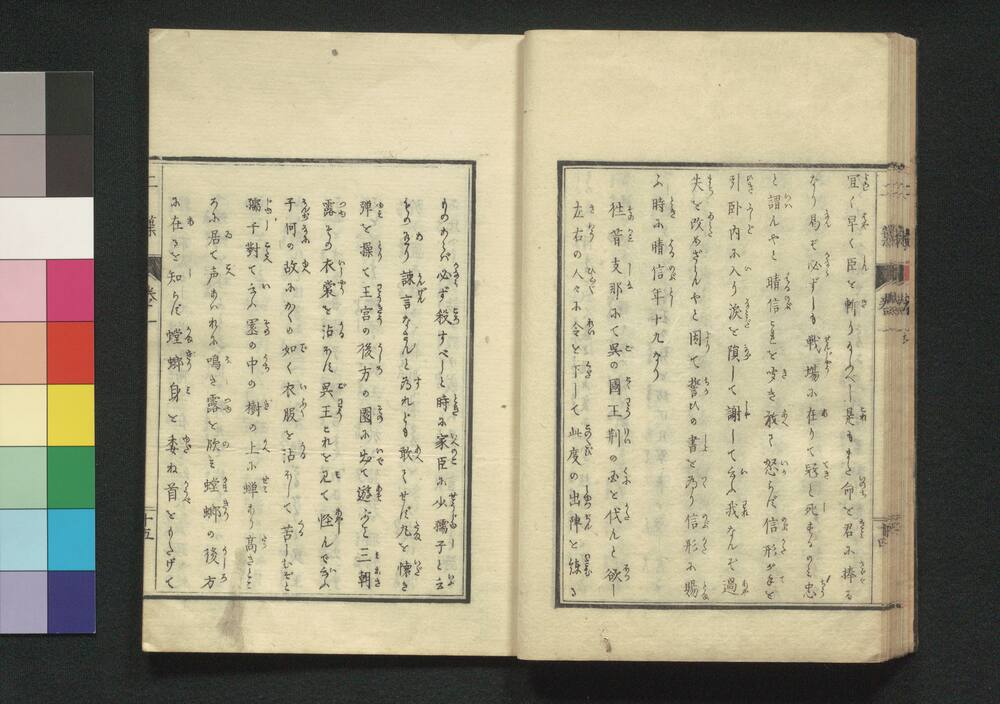 宜く早く臣を斬りるべし是もまた命を君に捧る
なり曷ぞ必ずしも戦場に在りて死するのみ忠
と謂んやと晴信これを聞き敢て怒らず信形が手を
引卧内に入り涙を隕して謝して云ふ我なんぞ過
失を改めざらんやと因て誓ひの書を為り信形に賜
ふ時に晴信年十九なり
往昔支那にて呉の國王荆の國を伐んと欲し
左右の人々に令を下して此度の出陣を練る
ものあらば必ず殺すべしと時に家臣に少孺子と云
ものあり諫言なさんと為れども敢てせだ丸を懐き
弾を操て王宮の後方の園に出て遊ぶこと三朝
露その衣裳を沾おす呉王これを見て怪んで云ふ
子何の故にかくの如く衣服を沾おして苦しむぞと
孺子對て云ふ園の中の樹の上に蝉あり高きとこ
ろに居て声あいれに鳴き露を飲み螳螂の後方
に在ことを知らず螳螂身を委ね首をもたげて
二集
巻二
十五